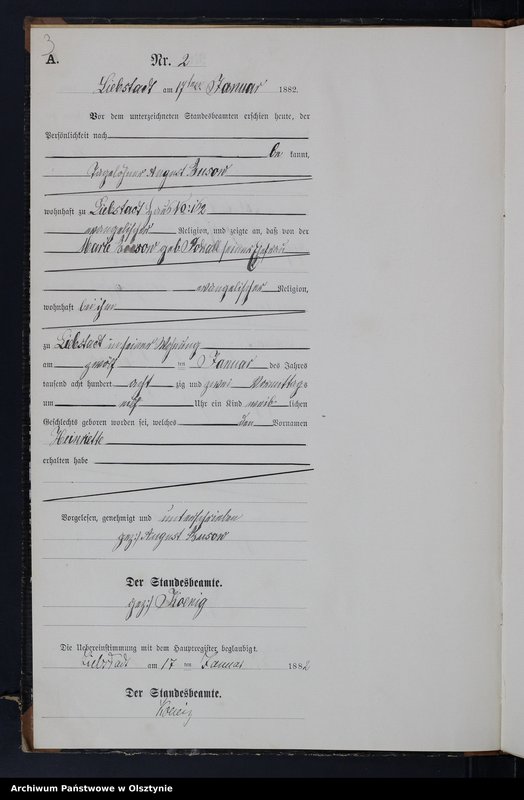 3
A.
Nr. 2
Liebstadt am 17ten Januar 1882.
Vor dem unterzeichneten Standesbeamten erschien heute, der
Persönlichkeit nach
be kannt,
Tagelöhner August
wohnhaft zu Liebstadt Haus No:
evangelischer Religion, und zeigte an, daß von der
Marie geb. seiner Ehefrau
evangelischer Religion,
wohnhaft bei ihm
zu Liebstadt in seiner Wohnung
am zwölf ten Januar des Jahres
tausend acht hundert acht zig und zwei Vormittags
um Uhr ein Kind weib lichen
Geschlechts geboren worden sei, welches den Vornamen
Heinriette
erhalten habe
Vorgelesen, genehmigt und unterschrieben
gez:) August
Der Standesbeamte.
gez:) Koenig
Die Uebereinstimmung mit dem Hauptregister beglaubigt.
Liebstadt am 17 ten Januar 1882
Der Standesbeamte.
Koenig
Archiwum Państwowe w Olsztynie